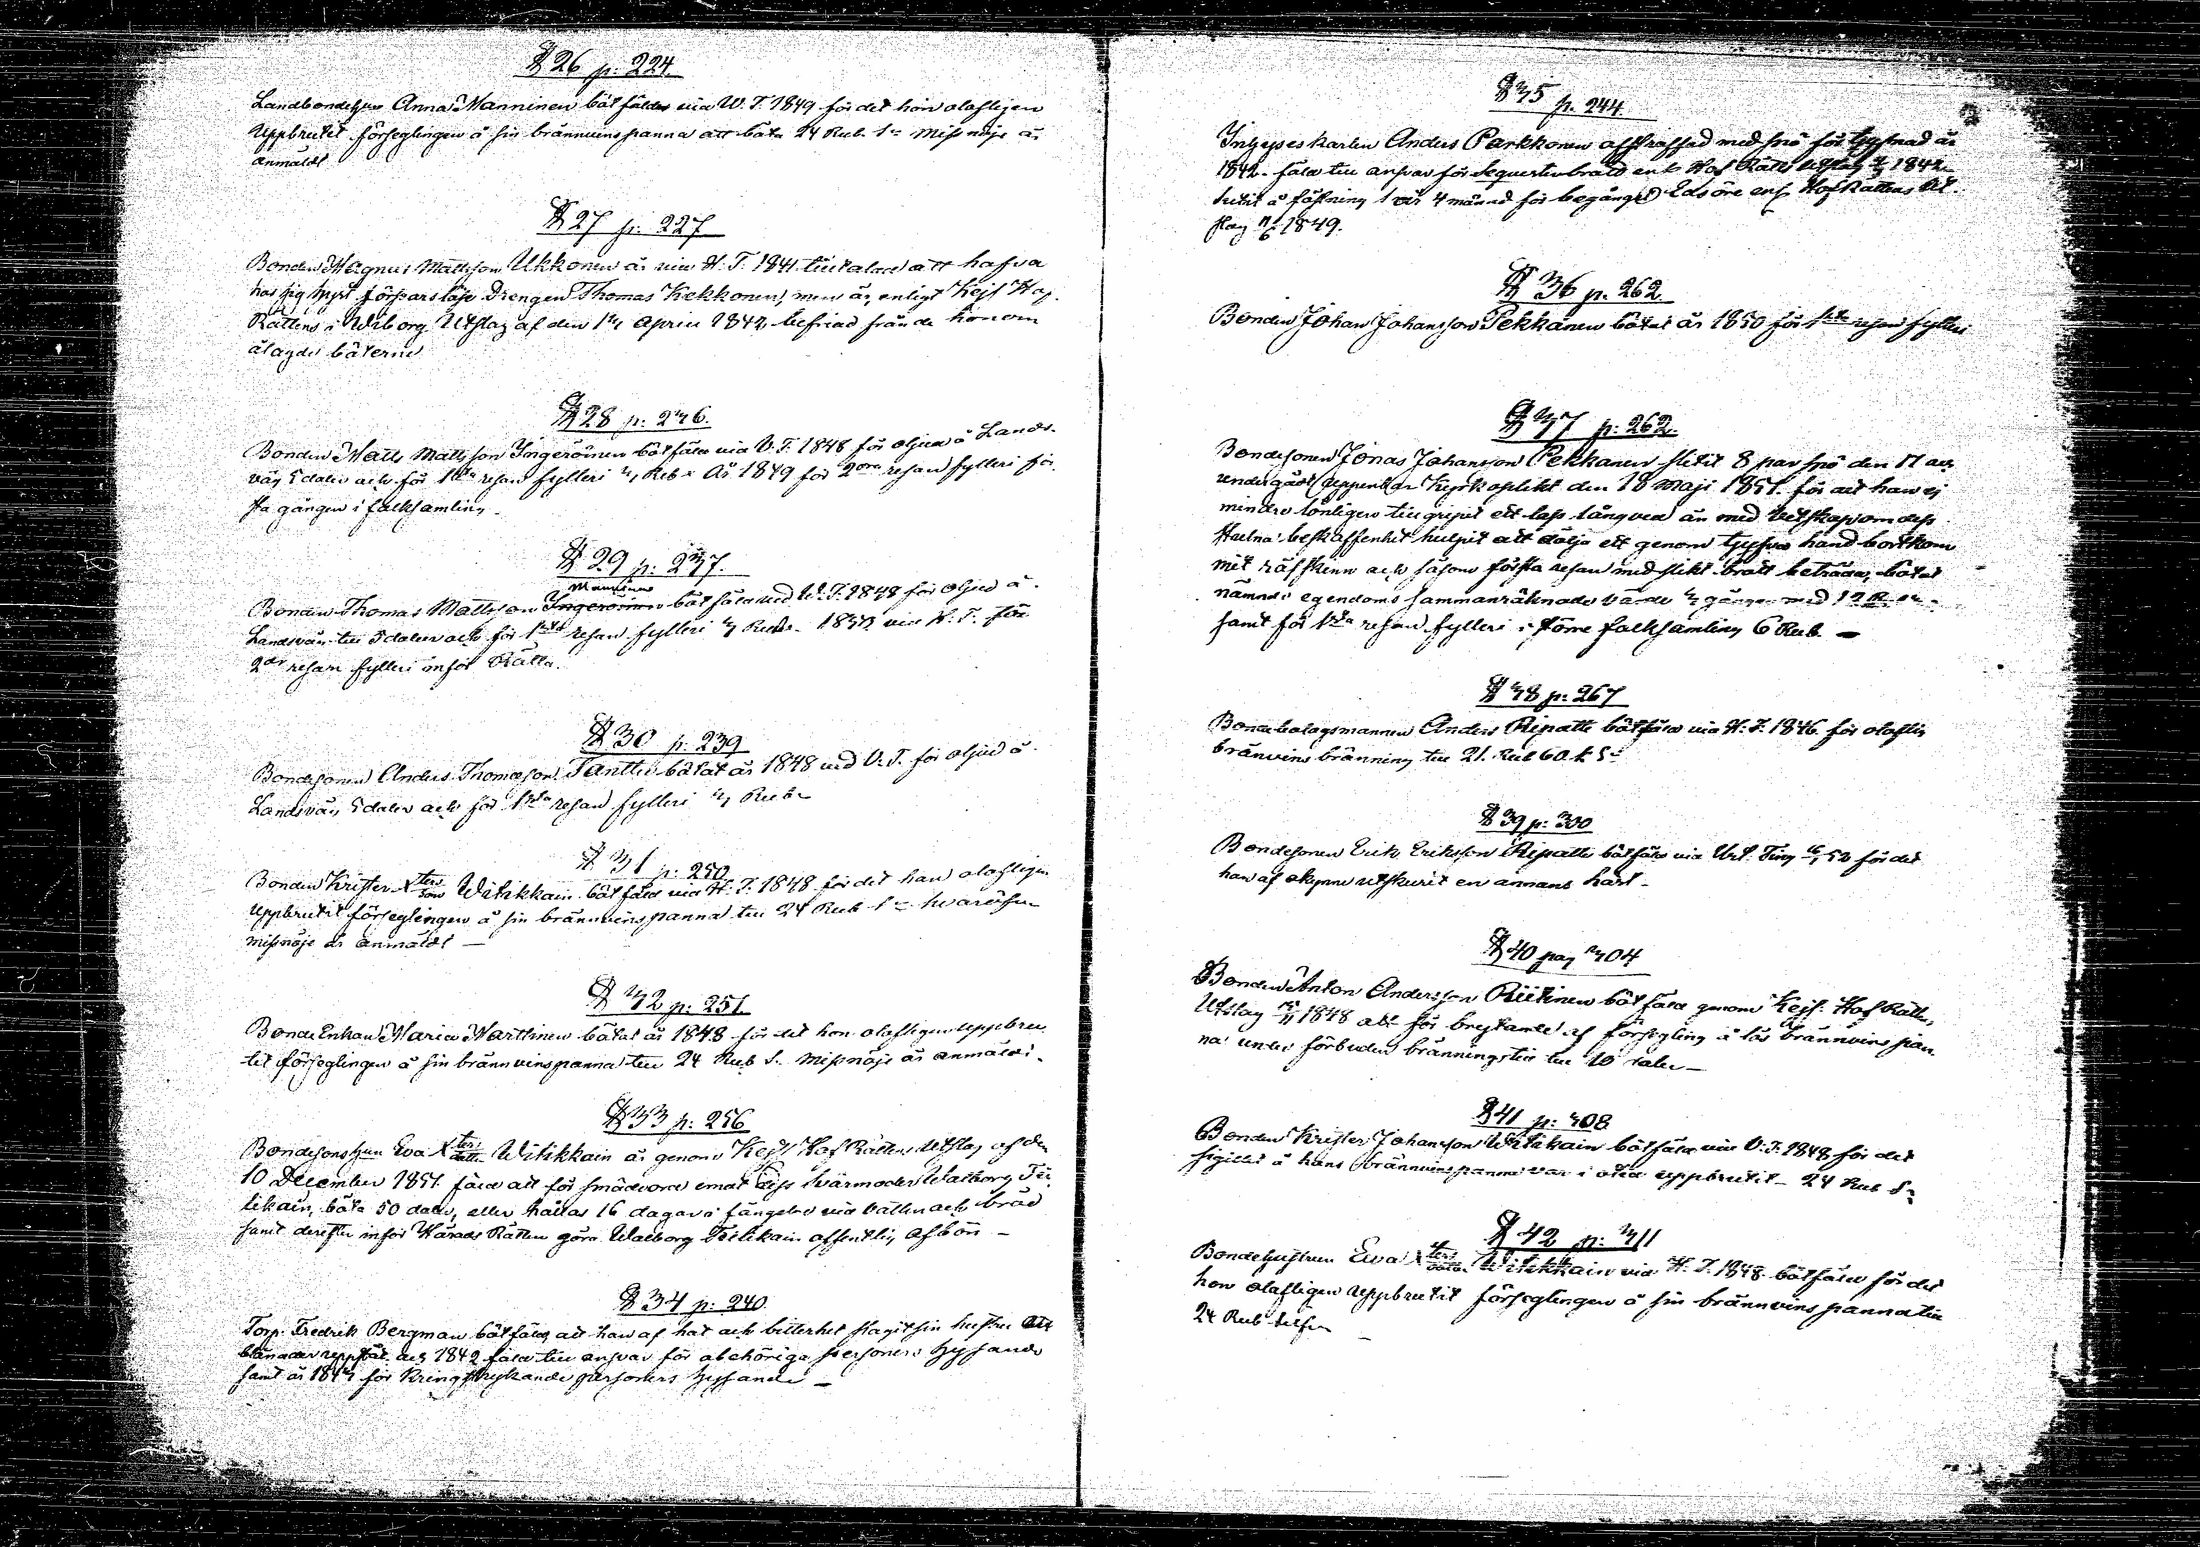 § 26 p: 224
Landbondehus Anna Manninen bötfäldes vid W. T. 1849 för det hon olofligen
uppbrutit förseglingen å sin brännvinspanna att böta 24 Rub Sr Missnöje är
anmäldt
§ 27 p: 227
Bonden Magnus Mattsson Ukkonen är vid H. T. 1841 tilltalad att hafva
hos sig hyst försvarslöse Drengen Thomas Kekkonen, men är, enligt Kejs Hof-
Rättens i Wiborg Utslag af den 1 April 1842, befriad från de honom
ålagde böterne
§ 28 p: 236.
Bonden Matts Mattsson Ingeröinen bötfäld vid V. T. 1848 för oljud å Lands-
väg 5 daler och för 1sta resan fylleri 3 Rub. År 1849 för 2dra resan fylleri för-
sta gången i folksamling.
§ 29 p: 237.
Manninen
Bonden Thomas Mattsson Ingeröinen bötfäld vid W. T. 1848 för oljud å
Landsväg till 5 daler och för 1sta resan fylleri 3 Rub. 1850 vid H. T. för
2dra resan fylleri inför Rätta.
§ 30 p: 239
Bondesonen Anders Thomasson Tanttu bötat år 1848 vid V. T. för oljud å
Landsväg 5 daler och för 1sta resan fylleri 3 Rub.
§ 31 p: 250
Bonden Krister Xters son Witikkain bötfäld vid H. T. 1848 för det han olofligen
uppbrutit förseglingen å sin brännvinspanna till 24 Rub Sr hvaröfver
missnöje är anmäldt —
§ 32 p: 251.
Bonde Enkan Maria Marttinen bötat år 1848 för det hon olofligen uppbru-
tit förseglingen å sin brännvinspanna till 24 Rub S. missnöje är anmäldt.
§ 33 p: 256
Bondesonshus Eva Xters dotter Witikkain är genom Kejs Hof Rättens Utslag af den
10 December 1851 fäld att för smädeord emot dess Svärmoder Walborg Tii-
likain, böta 50 daler, eller hållas 16 dagar i fängelse vid vatten och bröd
samt derefter inför Härads Rätten göra Walborg Tiilikain offentlig afbön —
§ 34 p: 240
Torp. Fredrik Bergman bötfäld, att han af hat och bitterhet slagit sin hustru
blånader och 1842 fäld till ansvar för obehöriga personers hysande
samt år 1843 för Kringstrykande personers hysande —
§ 35 p. 244.
Inhyseskarlen Anders Parkkonen afstraffad med spö för tjufnad år
1842. fäld till ansvar för Sequesterbrott enl. Hof Rätts utslag 1842
suttit å fästning 1 år 4 månad för begånget Edsöre enl. Hof Rättens Ut-
slag 1849.
§ 36 p. 262
Bonden Johan Johansson Pekkanen bötat år 1850 för 1sta resan fylleri
§ 37 p: 262.
Bondesonen Jonas Johansson Pekkanen slitit 8 par spö den 17 och
undergått uppenbar Kyrkoplikt den 18 Maji 1851. för att han ej
mindre lönligen tillgripit ett lass långved än med Vetskap om dess
stulna beskaffenhet hulpit att dölja ett genom tjufva hand bortkom-
mit räfskinn och såsom första resan med slikt brott beträdd, bötat
nämnde egendoms sammanräknade värde 3 gånger med
samt för 1sta resan fylleri i större folksamling 6 Rub. —
§ 38 p: 267
Bondebolagsmannen Anders Ripatti bötfäld vid H. T. 1846 för oloflig
bränvins bränning till 21. Rub 60. k Sr
§ 39 p: 300
Bondesonen Erik Eriksson Ripatti bötfäld vid Urt. Ting 52 för det
han af okynne utskurit en annans häst —
§ 40 pag 304
Bonden Anton Andersson Riitinen bötfäld genom Kejs. Hof Rätts
Utslag 1848 att för brytande af försegling å lås brännvinspan-
na under förbuden bränningstid till 10 daler —
§ 41 p: 308
Bonden Krister Johansson Witikain bötfäld vid V. T. 1848 för det
sigillet å hans brännvinspanna var i otid uppbrutit — 24 Rub Sr
§ 42 p: 311
Bondehustrun Eva Xters dotter Witikkain vid H. T. 1848 bötfäld för det
hon olofligen uppbrutit förseglingen å sin brännvinspanna till
24 Rub silfver